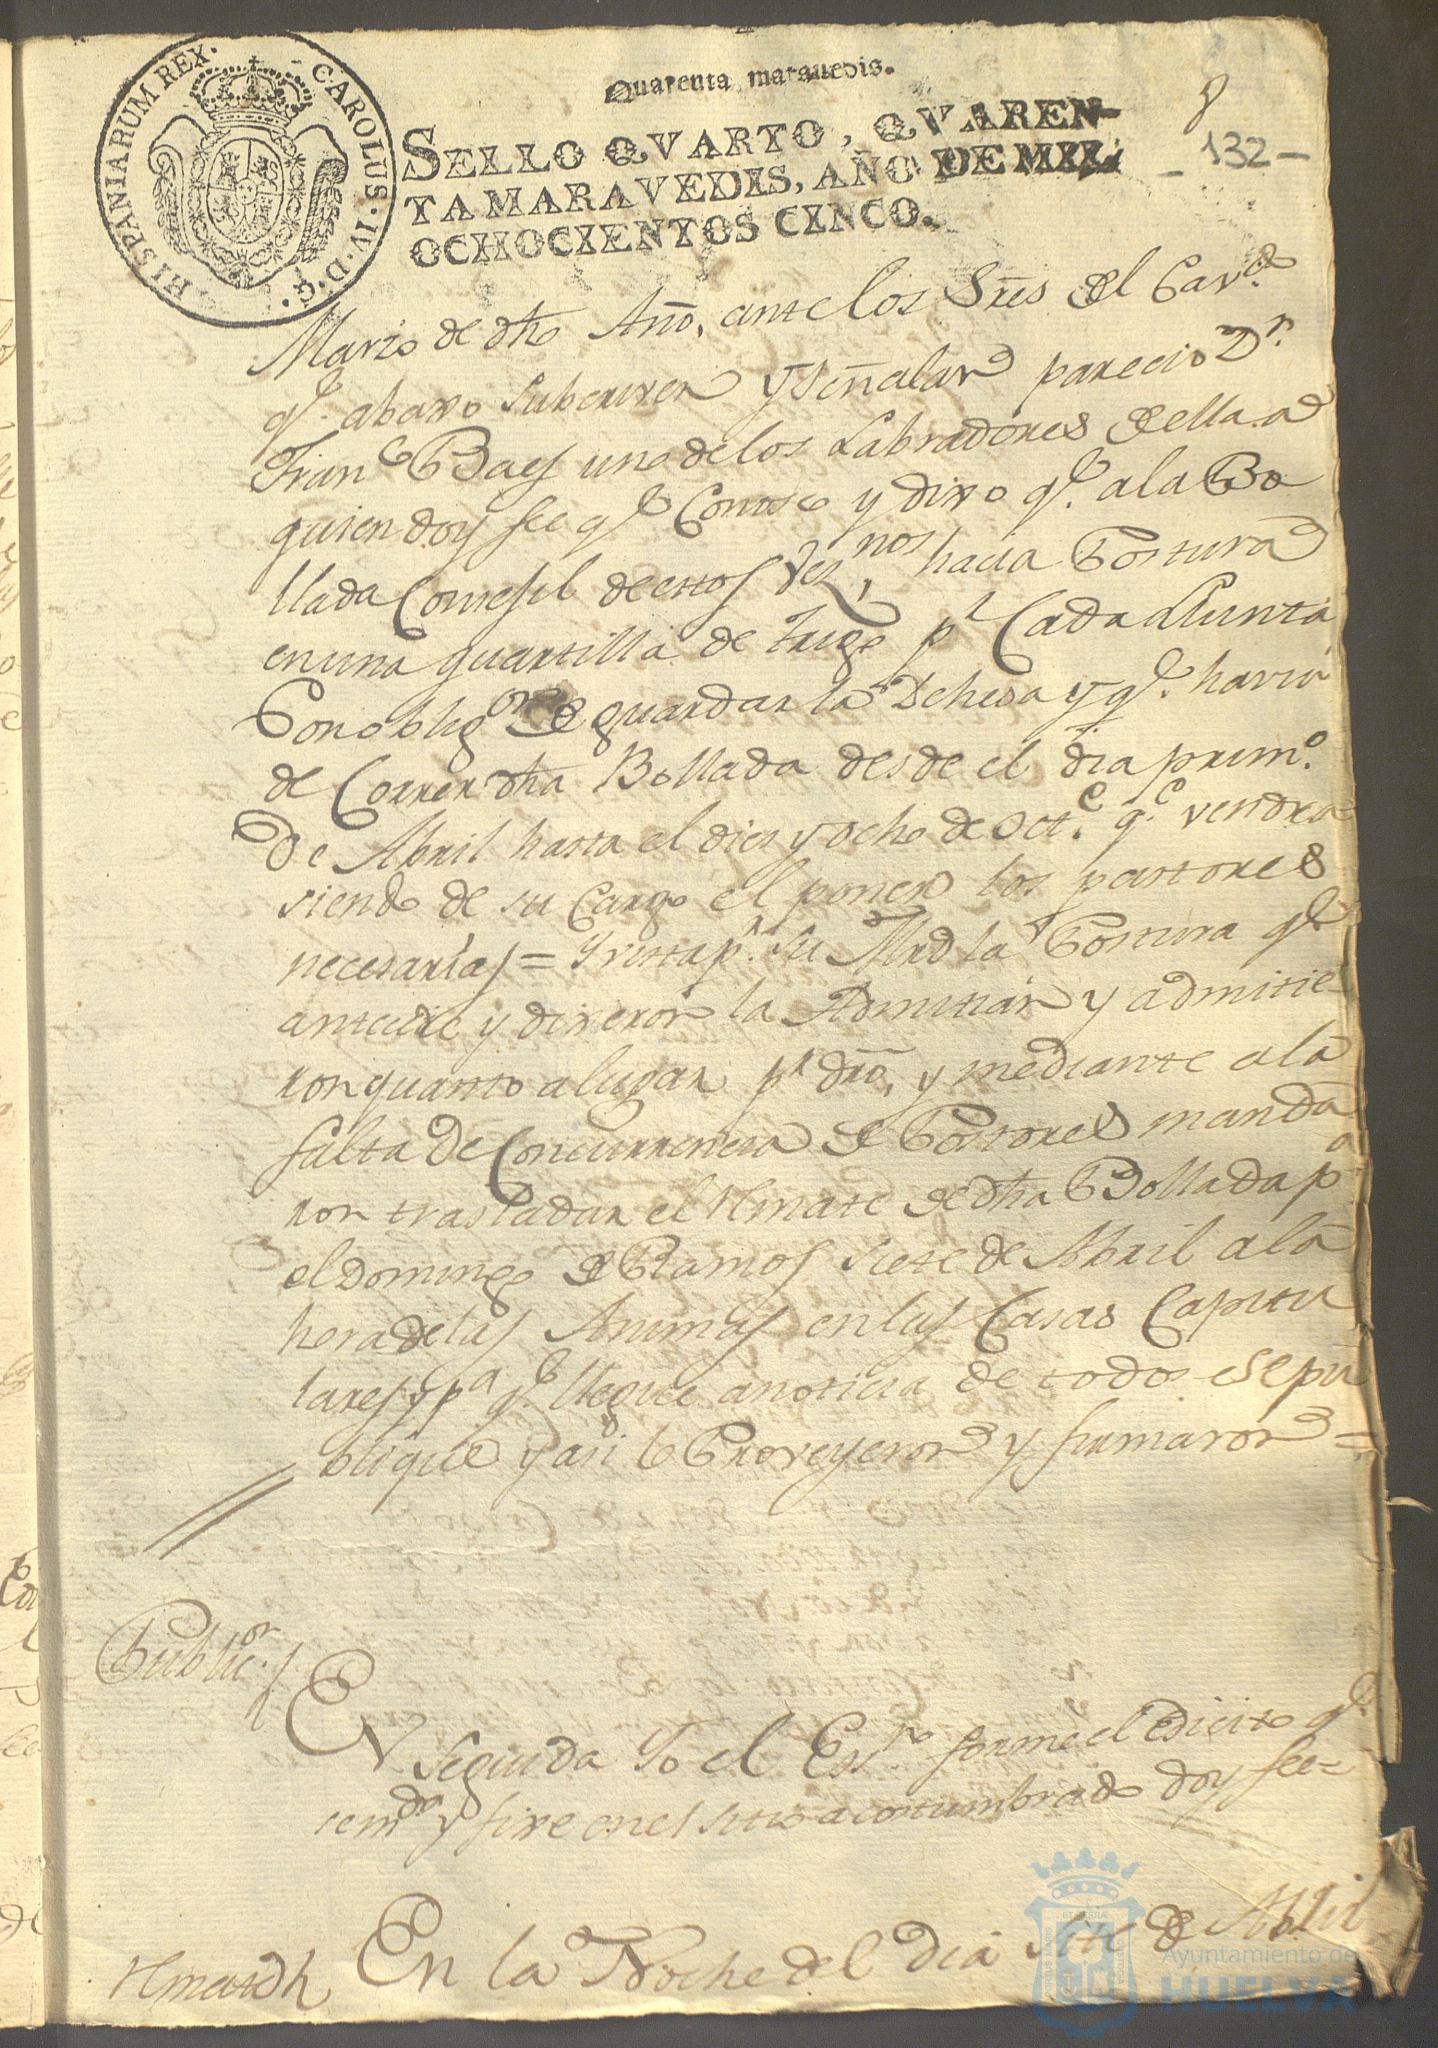 HISPANIARUM REX. CAROLUS·IV·D·G·
Quarenta marauedis.
SELLO QVARTO, QVAREN-
TA MARAVEDIS, AÑO DE MIL
OCHOCIENTOS CINCO.
8
132-
Marzo de dho Año, ante los Sres del Cavdo
qe. abaxo subcriven y señalan parecio Dn.
Franco Baes uno de los Labradores de ella a
quien doy fee qe Conosco y dixo qe. a la Bo
llada Consesil de estos veznos, hacia Postura
en una quartilla de trigo pr Cada Llunta
Con obligon de guardar la Dehesa y qe. havia
de Correr dha Bollada desde el dia primo.
De Abril hasta el dies y ocho de Octe. qe. vendra
siendo de su Cargo el poner los pastores
necesarias = Y vista pr. su Mrd la Postura qe
antecede y dixeron la Admitian y admitie
ron quanto a lugar pr dro, y mediante a la
falta de Concurrencia de Postores manda
ron trasladar el Rmate de dha Bollada pa
el Domingo de Ramos siete de Abril a la
hora de las Animas en las Casas Capitu
lares y pa qe. llegue a noticia de todos se pu
blique y asi lo Proveyeron y firmaron =
Publicon.
En seguida Yo el Essno. forme el Edicto qe.
semdo y fixe en el sitio acostumbrado doy fee=
Rmate
En la Noche del dia siete de Abril
Ayuntamiento de
HUELVA